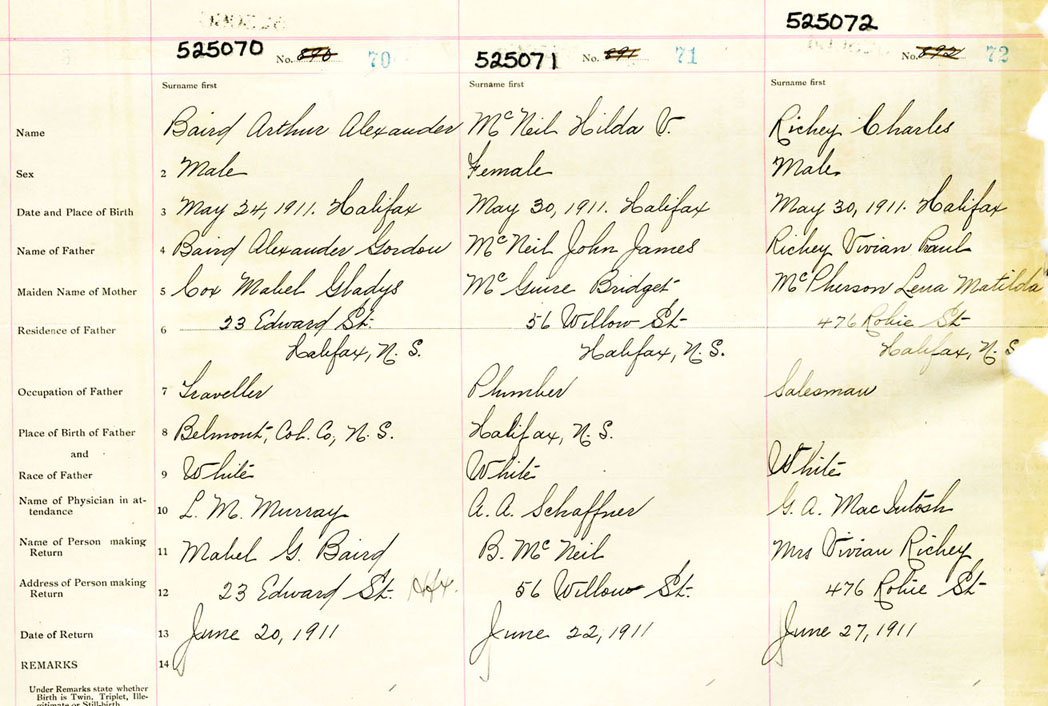 525072
525070 No. 890 70 525071 No. 891 71 No. 892 72
Surname first Surname first Surname first
Name Baird Arthur Alexander McNeil Hilda V. Richey Charles
Sex 2 Male Female Male
Date and Place of Birth 3 May 24, 1911. Halifax May 30, 1911. Halifax May 30, 1911. Halifax
Name of Father 4 Baird Alexander Gordon McNeil John James Richey Vivian Paul
Maiden Name of Mother 5 Cox Mabel Gladys McGuire Bridget McPherson Lena Matilda
Residence of Father 6 23 Edward St. 56 Willow St. 476 Robie St
Halifax, N.S. Halifax, N.S. Halifax, N.S
Occupation of Father 7 Traveller Plumber Salesman
Place of Birth of Father 8 Belmont, Col. Co, N.S. Halifax, N.S.
and
Race of Father 9 White White White
Name of Physician in at-
tendance 10 L. M. Murray A. A. Schaffner G. A. MacIntosh
Name of Person making
Return 11 Mabel G. Baird B. McNeil Mrs Vivian Richey
Address of Person making
Return 12 23 Edward St. Hfx. 56 Willow St. 476 Robie St
Date of Return 13 June 20, 1911 June 22, 1911 June 27, 1911
REMARKS 14
Under Remarks state whether
Birth is Twin, Triplet, Ille-
gitimate or Still-birth